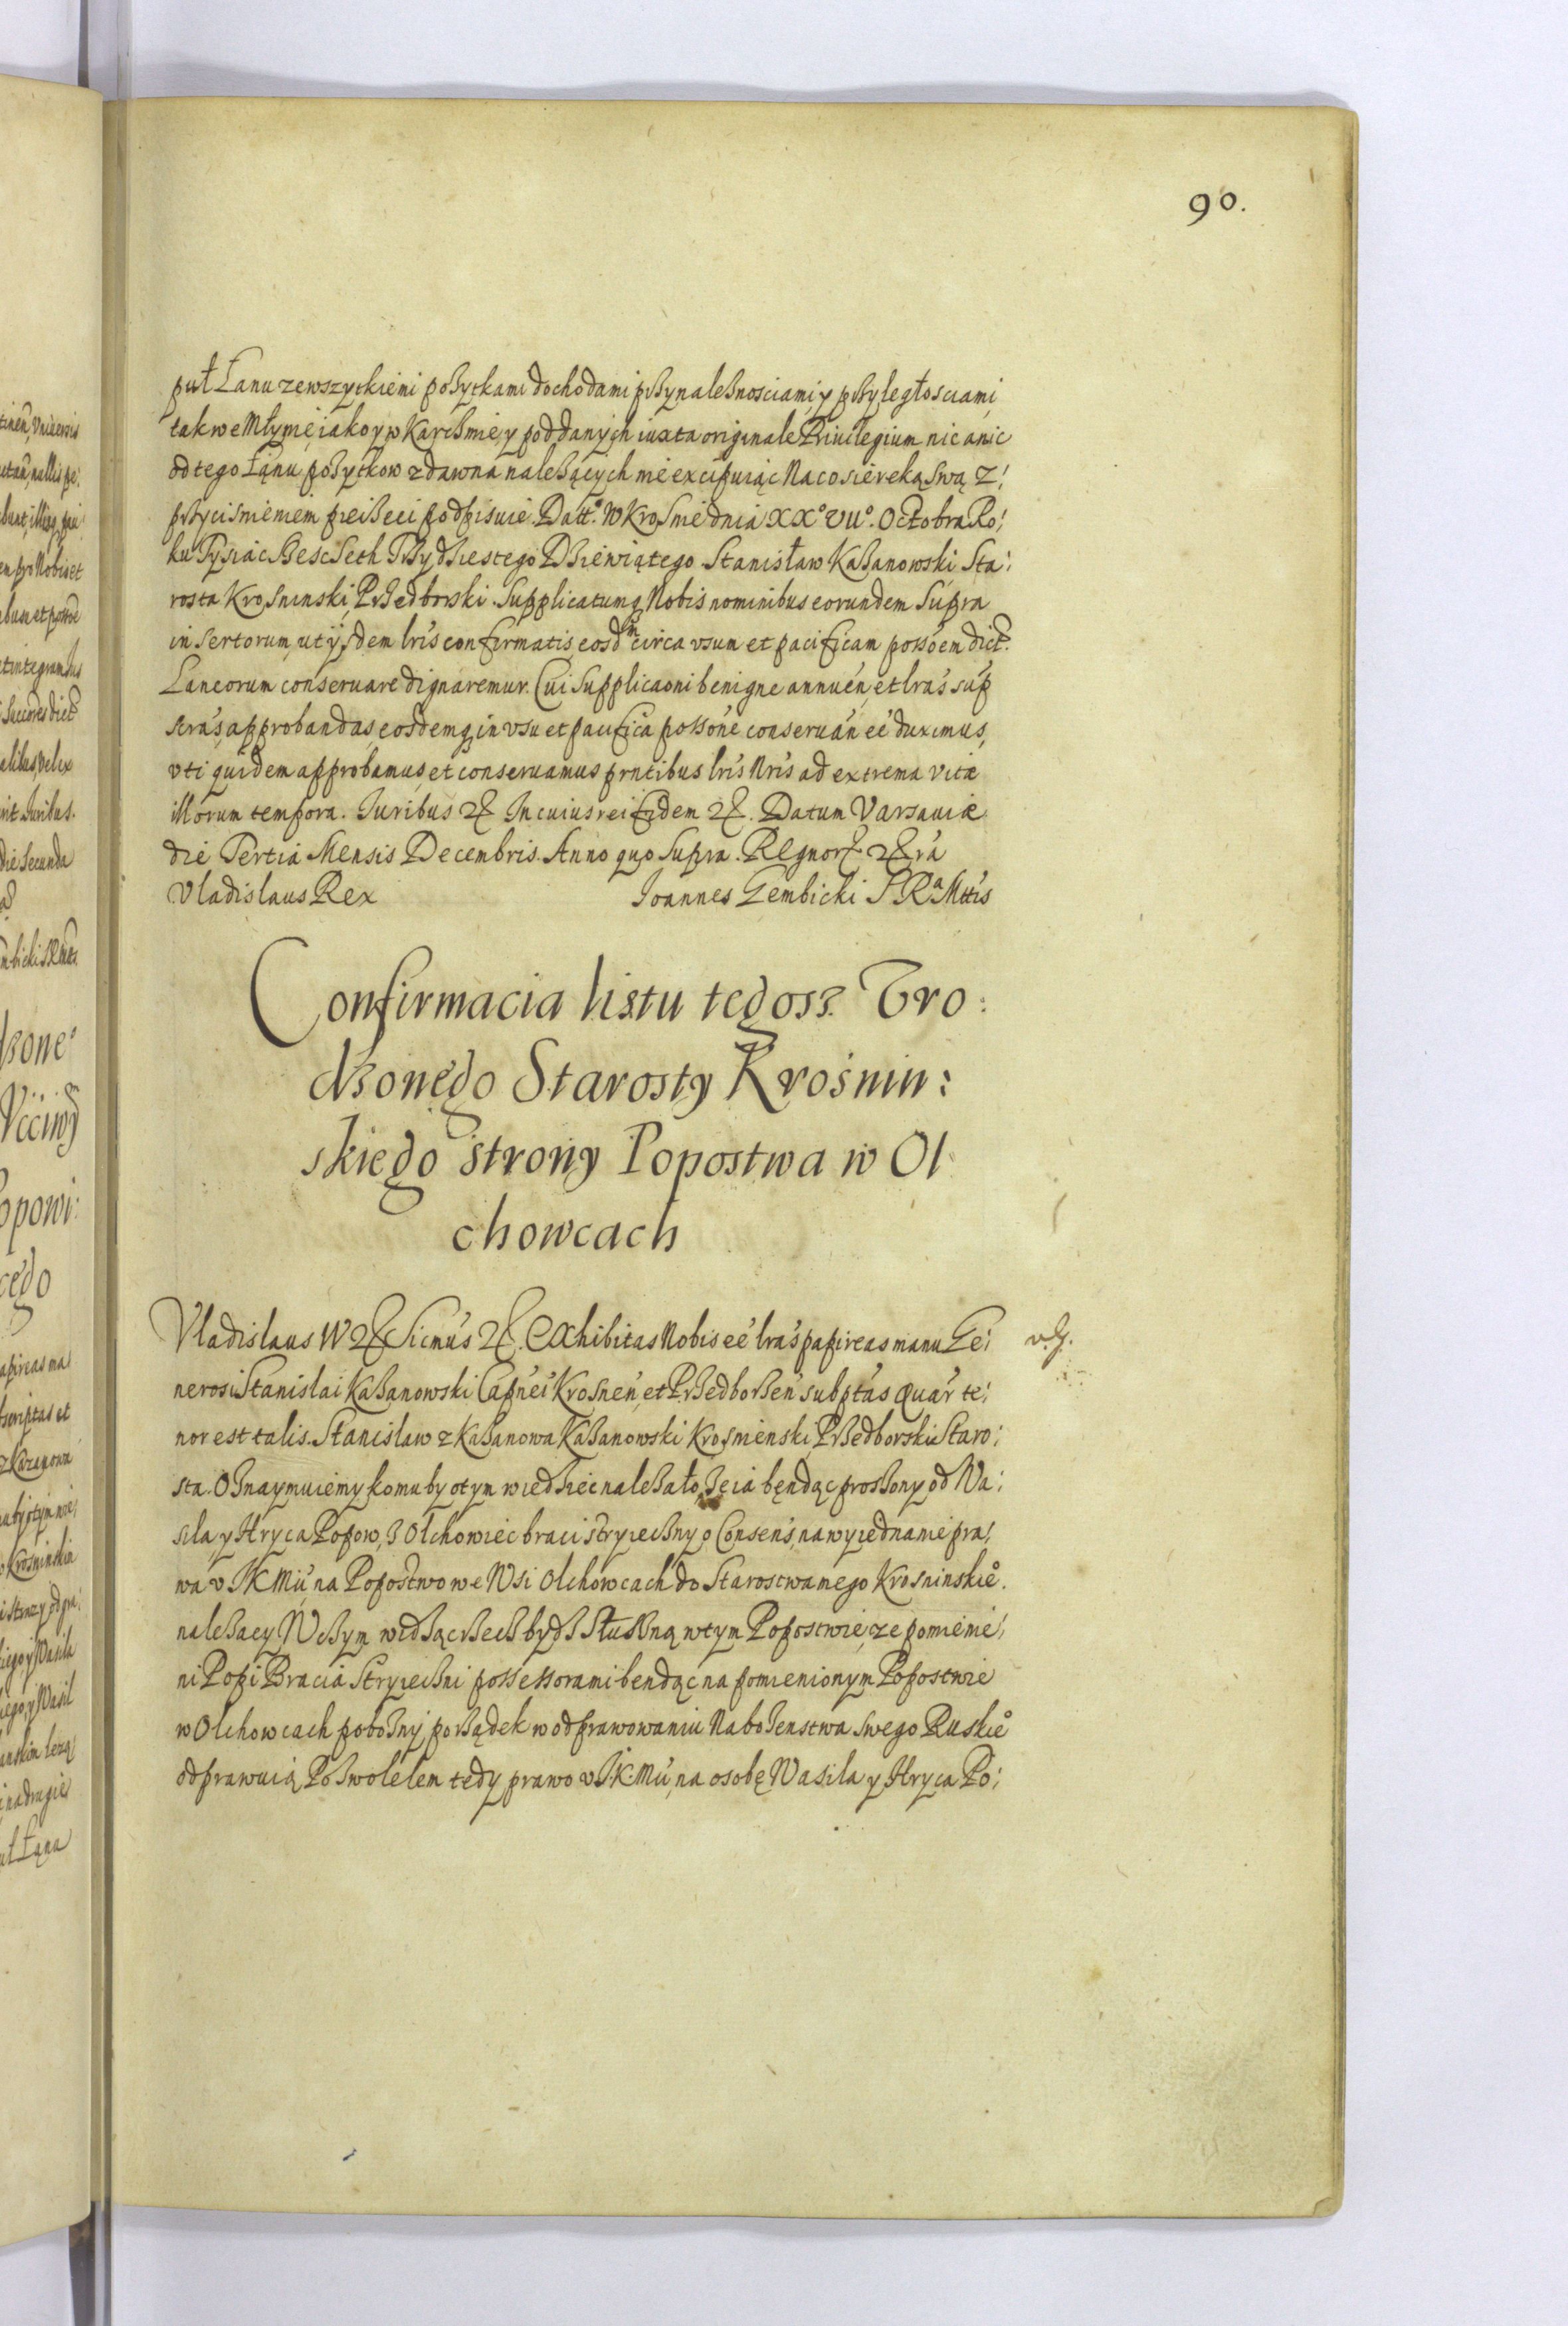 90.
puł Łanu ze wszytkiemi pożytkami dochodami przynależnosciami, y przyległosciami,
tak we Młynie, iako y w Karczmie, y poddanych iuxta originale Priuilegium nic a nic
od tego Łanu pożytkow z dawna należących nie excipuiąc Na co się ręką swą z!
przycisnieniem pieczęci podpisuię. Datt.º W Krosnie dnia XXº VIIº. Octobra Ro!
ku Tysiąc Szescseth Trzydziestego Dziewiątego. Stanisław Kazanowski Sta:
rosta Krosninski, Przedborski. Supplicatumq Nobis nominibus eorundem supra
insertorum, ut ijsdem lris confirmatis, eosdem circa vsum et pacificam possoem dict.
Laneorum conseruare dignaremur. Cui supplicaoni benigne annuen, et lras sup
scras, approbandas, eosdemq in vsu et pacifica possone conseruan ee duximus,
vti quidem approbamus, et conseruamus prntibus lris Nris ad extrema vitæ
illorum tempora. Iuribus &c In cuius rei fidem &c. Datum Varsauiæ
die Tertia Mensis Decembris. Anno quo supra. Regnor &c ra
Vladislaus Rex Joannes Gembicki S R a Mttis
Confirmacia listu tegosz Vro:
dzonego Starosty Krośnin:
skiego strony Popostwa w Ol
chowcach
Vladislaus IV &c Sicmus &c. Exhibitas Nobis ee lras papireas manu Ge:
nerosi Stanislai Kazanowski Capnei Krosnen, et Przedborzen subptas Quar te:
nor est talis. Stanislaw z Kazanowa Kazanowski Krosnienski, Przedborski Staro:
sta. Oznaymuiemy komu by o tym wiedziec należało, że ia bęndąc proszony od Wa:
sila, y Hryca Popow, z Olchowiec braci stryieczny o Consens, na wyiednanie pra!
wa v JK Mu, na Popostwo we Wsi Olchowcach do Starostwa mego Krosninskieº.
należacy. W czym widząc rzecz bydz słuszną w tym Popostwie, ze pomienie!
ni Popi Bracia Stryieczni possessorami bendąc na pomienionym Popostwie
w Olchowcach pobożny porządek w odprawowaniu Nabożenstwa swego Ruskieº
odprawuią Pozwolelem tedy prawo v JK: Mu, na osobę Wasila y Hryca Po: